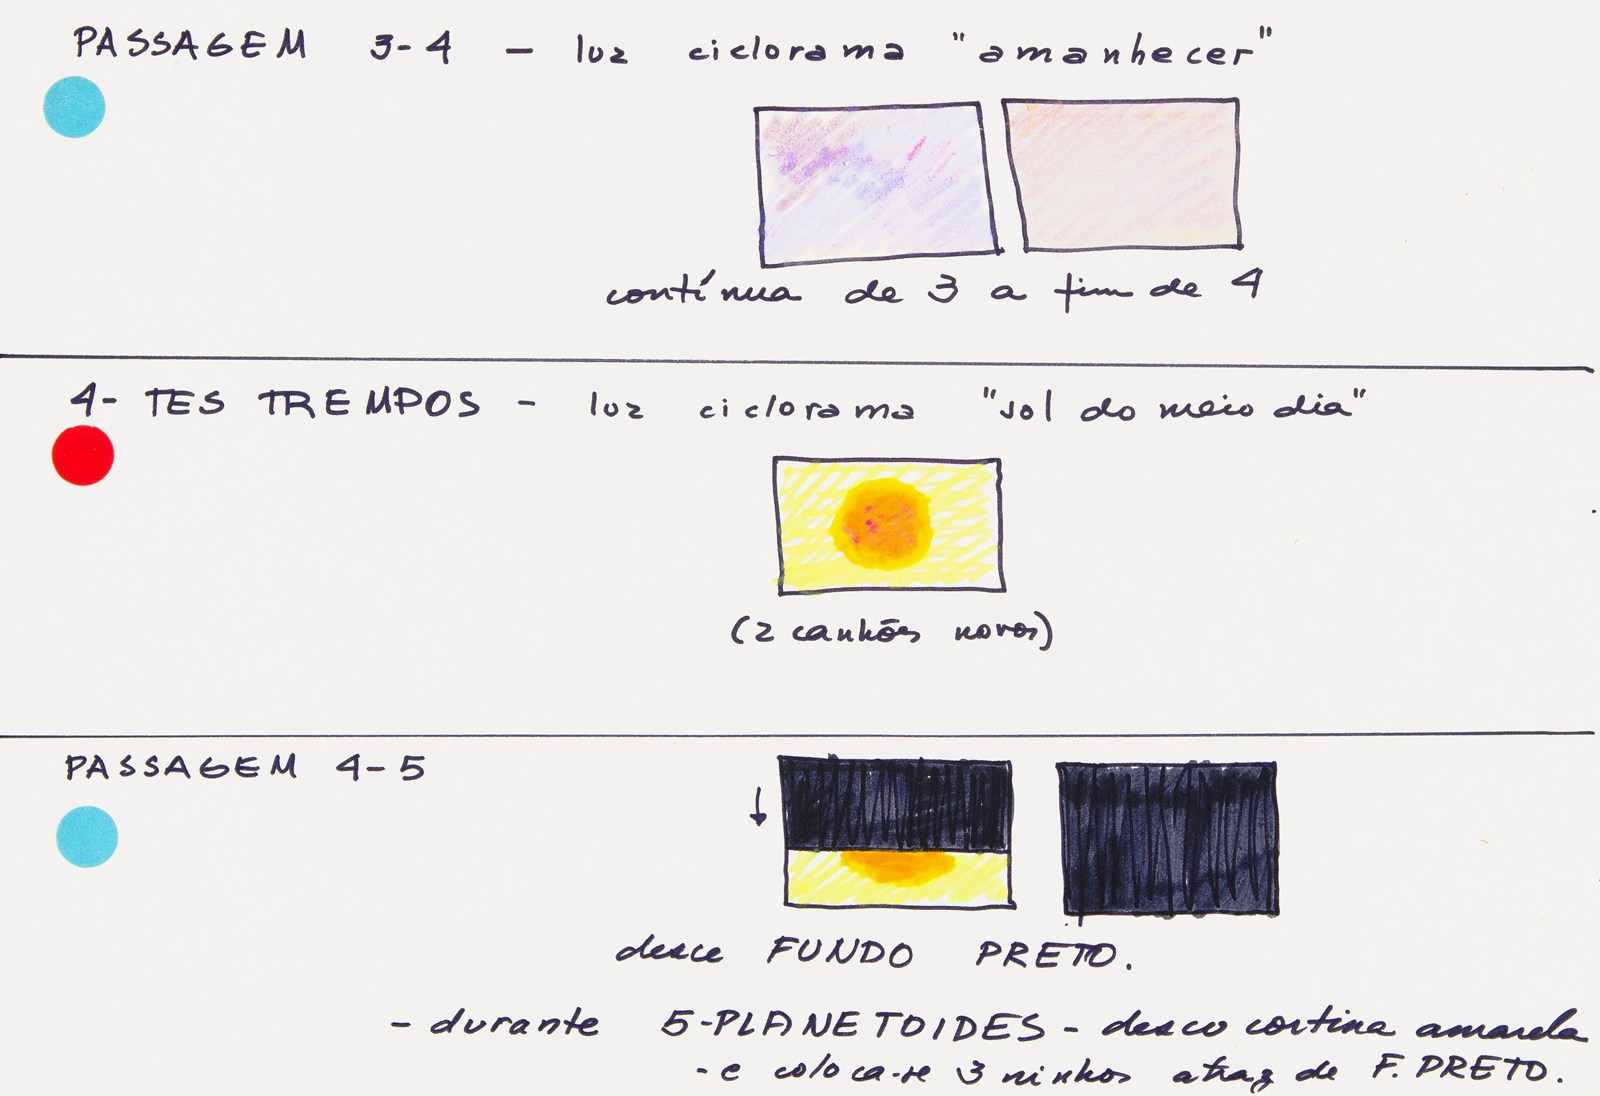 PASSAGEM 3-4 — luz ciclorama "amanhecer"
contínua de 3 a fim de 4
4- TES TREMPOS - luz ciclorama "sol do meio dia"
(2 canhões novos)
PASSAGEM 4-5
desce FUNDO PRETO.
- durante 5-PLANETOIDES - desce cortina amarela
- e coloca-se 3 ninhos atraz de F. PRETO.